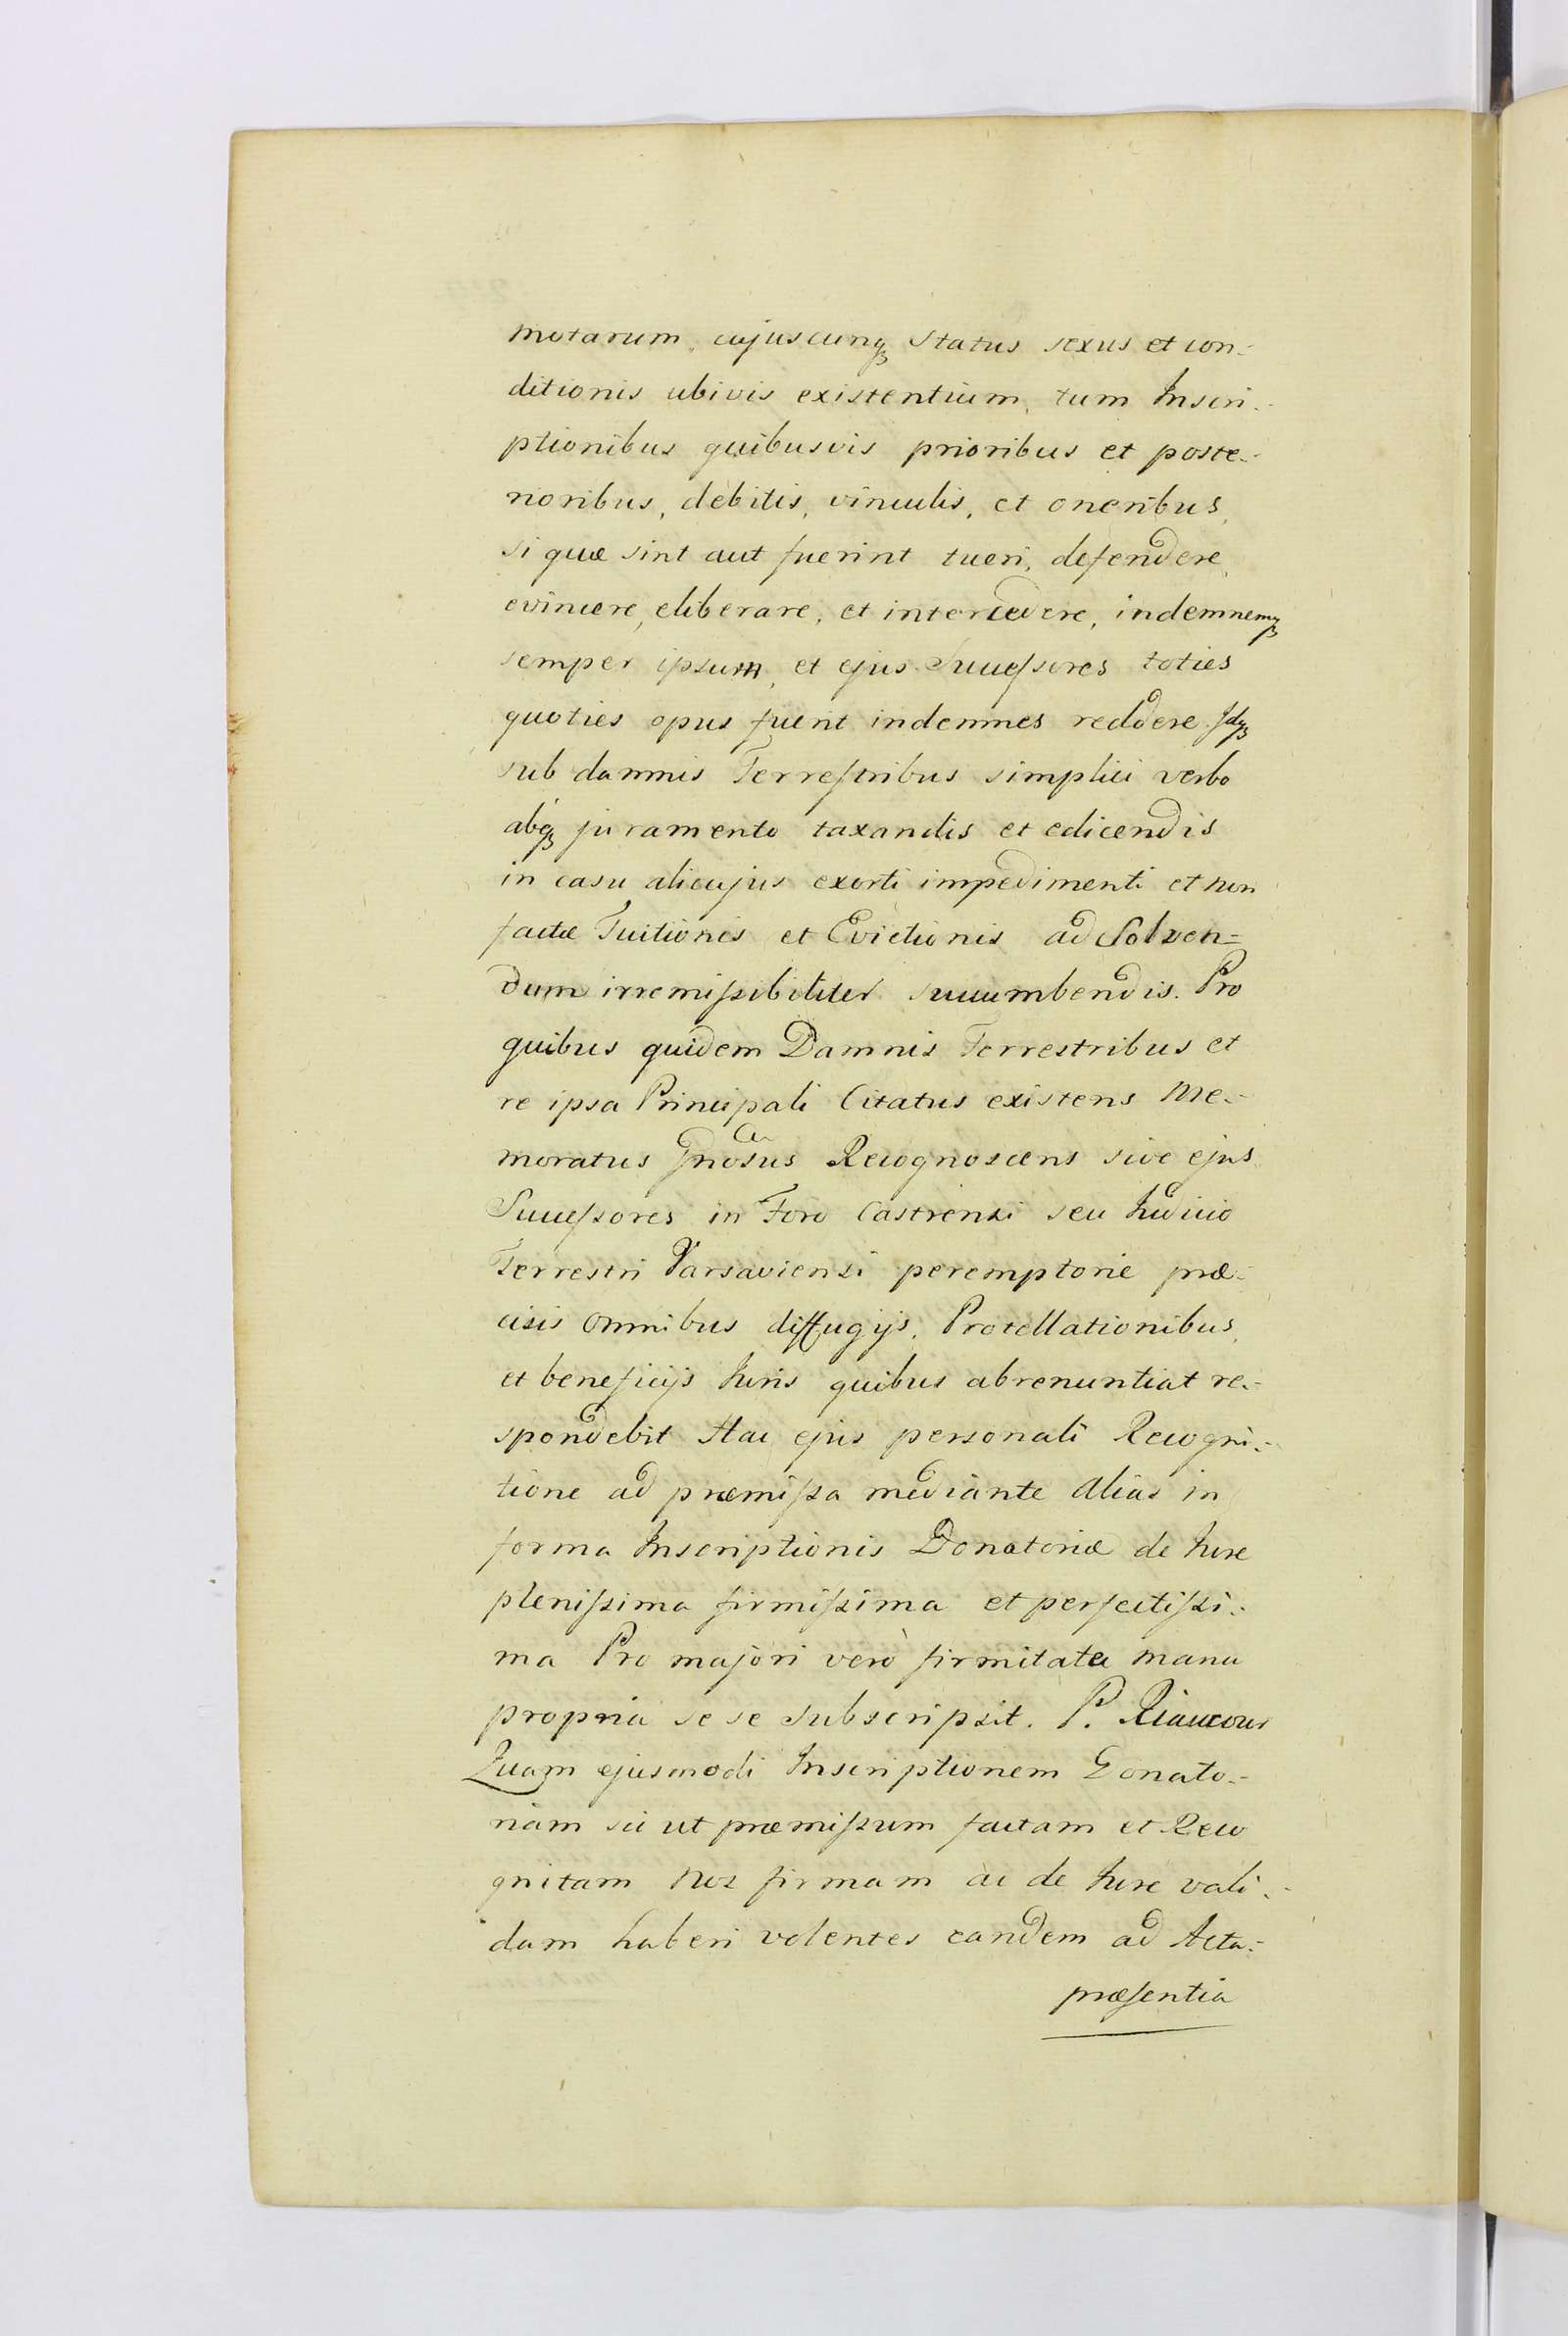 motarum, cujuscunq3 Status sexus et con-
ditionis ubivis existentium, tum Inscri-
ptionibus quibusvis prioribus et poste-
rioribus, debitis, vinculis, et oneribus,
si quæ sint aut fuerint tueri, defendere,
evincere, eliberare, et intercedere, indemnemq3
semper ipsum, et ejus Succeſsores toties
quoties opus fuerit indemnes reddere. Idq3
sub damnis Terreſtribus simplici verbo
absq3 juramento taxandis et edicendis
in casu alicujus exorti impedimenti et non
factæ Tuitionis et Evictionis ad Solven=
dum irremiſsibiliter succumbendis. Pro
quibus quidem Damnis Terrestribus et
re ipsa Principali Citatus existens Me-
moratus Gnosus Recognoscens sive ejus
Succeſsores in Foro Castrensi seu Iudicio
Terrestri Varsaviensi peremptorie præ-
cisis omnibus diffugijs, Protellationibus,
et beneficijs Iuris quibus abrenuntiat re-
spondebit Hac ejus personali Recogni-
tione ad præmiſsa mediante Alias in
forma Inscriptionis Donatoriæ de Iure
pleniſsima firmiſsima et perfectiſsi-
ma Pro majori verò firmitate manu
propria se se subscripsit. P. Riaucour
Quam ejusmodi Inscriptionem Donato-
riam sic ut præmiſsum factam et Reco
gnitam Nos firmam ac de Iure vali-
dam haberi volentes eandem ad Acta-
præſentia